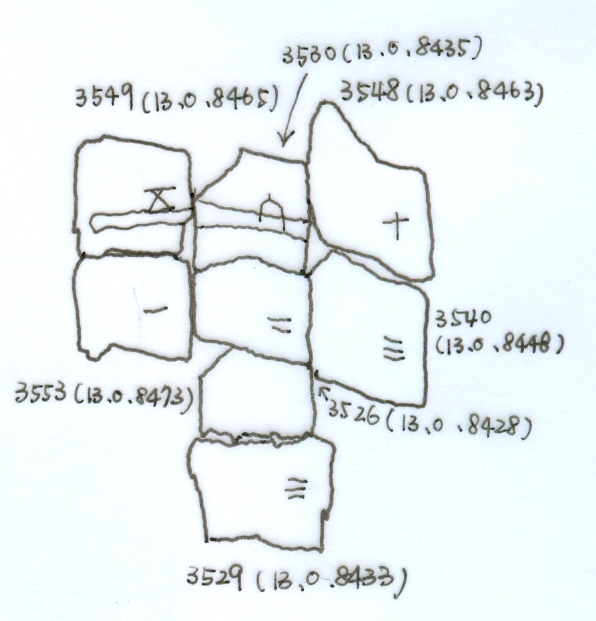 3530 (13.0.8435)
3549 (13.0.8465)
3548 (13.0.8463)
𠄡
∩
十
一
二
亖
3540
(13.0.8448)
3553 (13.0.8473)
3526 (13.0.8428)
三
3529 (13.0.8433)